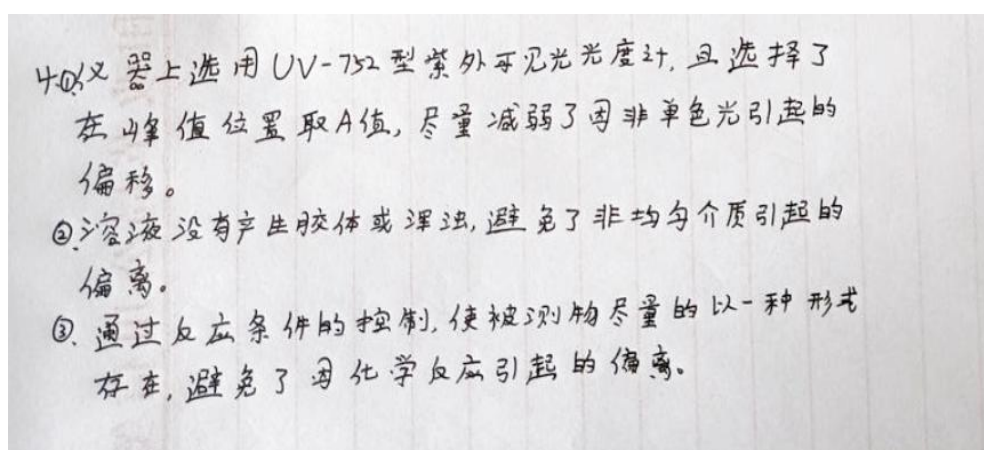 4.①仪器上选用UV-752型紫外可见光光度计,且选择了
在峰值位置取A值,尽量减弱了因非单色光引起的
偏移。
②溶液没有产生胶体或浑浊,避免了非均匀介质引起的
偏离。
③.通过反应条件的控制,使被测物尽量的以一种形式
存在,避免了因化学反应引起的偏离。